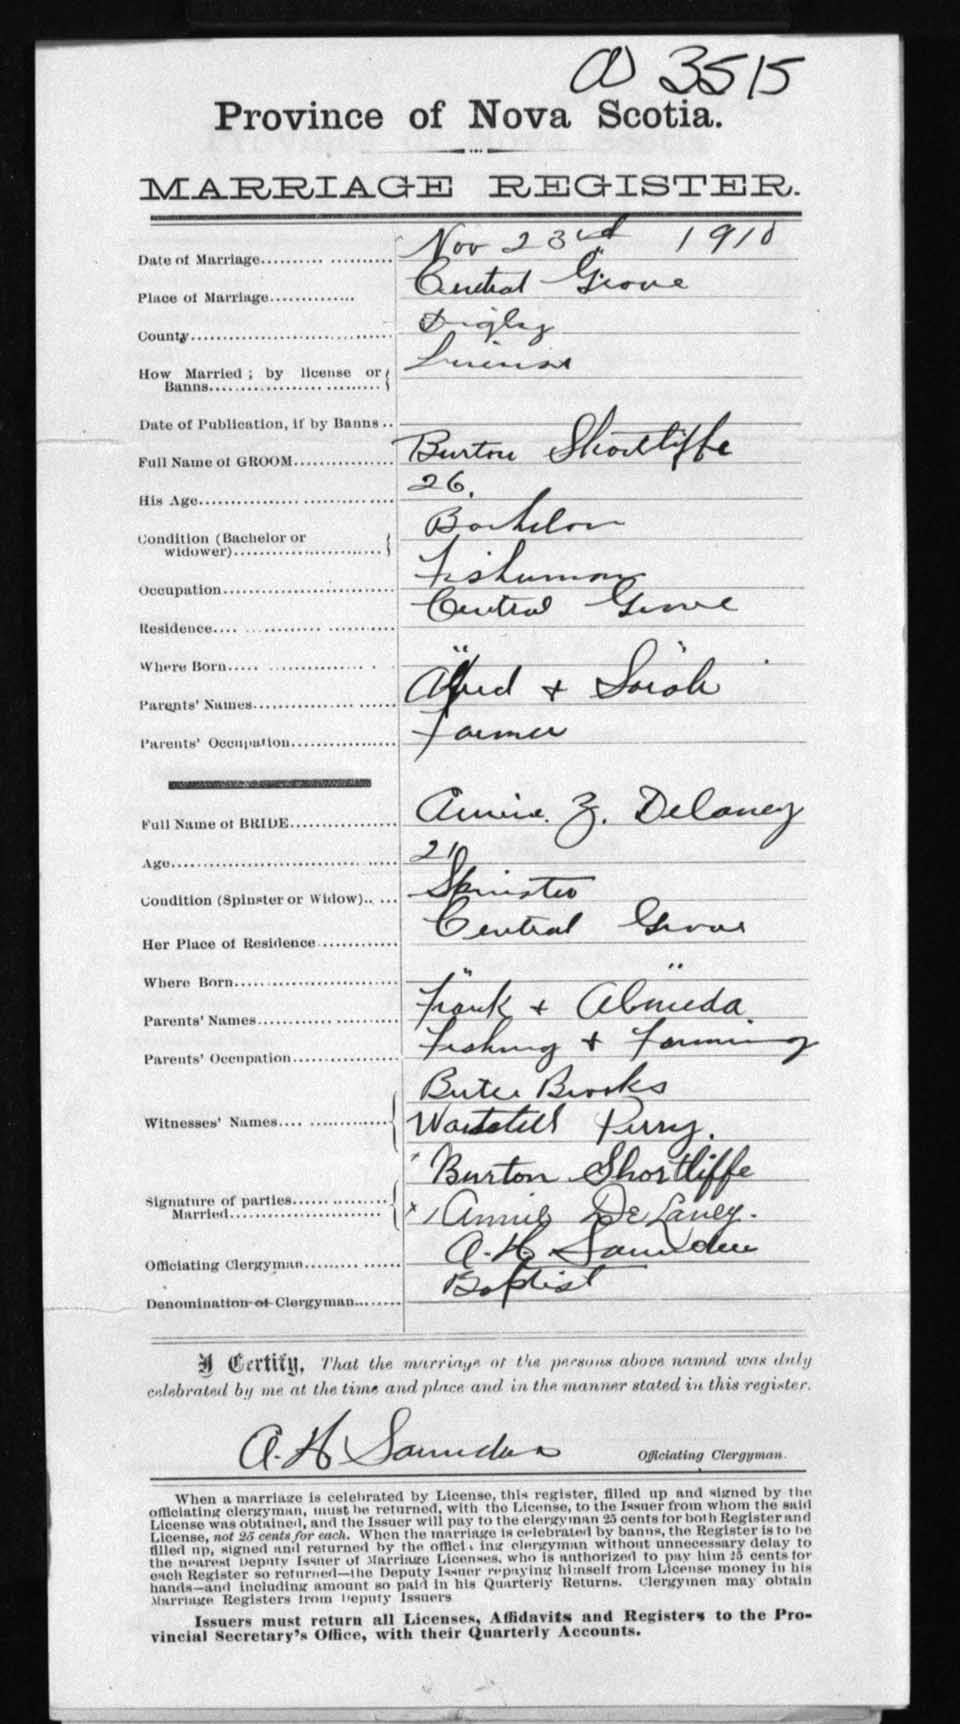 A 3515
Province of Nova Scotia.
MARRIAGE REGISTER.
Date of Marriage.................... Nov 23rd 1910
Place of Marriage.............. Central Grove
County.............................. Digby
How Married; by license or License
Banns..............................
Date of Publication, if by Banns..
Full Name of GROOM............... Burton Shortliffe
His Age............................. 26.
Condition (Bachelor or Bachelor
widower)......................
Occupation......................... Fisherman
Residence.... .................... Central Grove
Where Born..... .............. . "
Parents' Names..................... Alfred & Sarah
Parents' Occupation................ Farmer
Full Name of BRIDE................ Annie. Z. Delaney
Age............................... 21
Condition (Spinster or Widow)..... Spinster
Her Place of Residence............ Central Grove
Where Born........................ " "
Parents' Names.................... Frank & Almeda.
Parents' Occupation............... Fishing & Farming
Witnesses' Names.... ............. Brooks
Perry.
Signature of parties............... Burton Shortliffe
Married....................... x Annie DeLaney.
Officiating Clergyman............. A. H Saunders
Denomination of Clergyman........ Baptist
I Certify, That the marriage of the persons above named was duly
celebrated by me at the time and place and in the manner stated in this register.
A. H Saunders Officiating Clergyman.
When a marriage is celebrated by License, this register, filled up and signed by the
officiating clergyman, must be returned, with the License, to the Issuer from whom the said
License was obtained, and the Issuer will pay to the clergyman 25 cents for both Register and
License, not 25 cents for each. When the marriage is celebrated by banns, the Register is to be
filled up, signed and returned by the offici ing clergyman without unnecessary delay to
the nearest Deputy Issuer of Marriage Licenses, who is authorized to pay him 25 cents for
each Register so returned—the Deputy Issuer repaying himself from License money in his
hands—and including amount so paid in his Quarterly Returns. Clergymen may obtain
Marriage Registers from Deputy Issuers
Issuers must return all Licenses, Affidavits and Registers to the Pro-
vincial Secretary's Office, with their Quarterly Accounts.